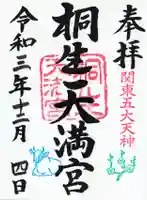 奉拝
関東五大天神
桐生天満宮
令和三年十二月四日